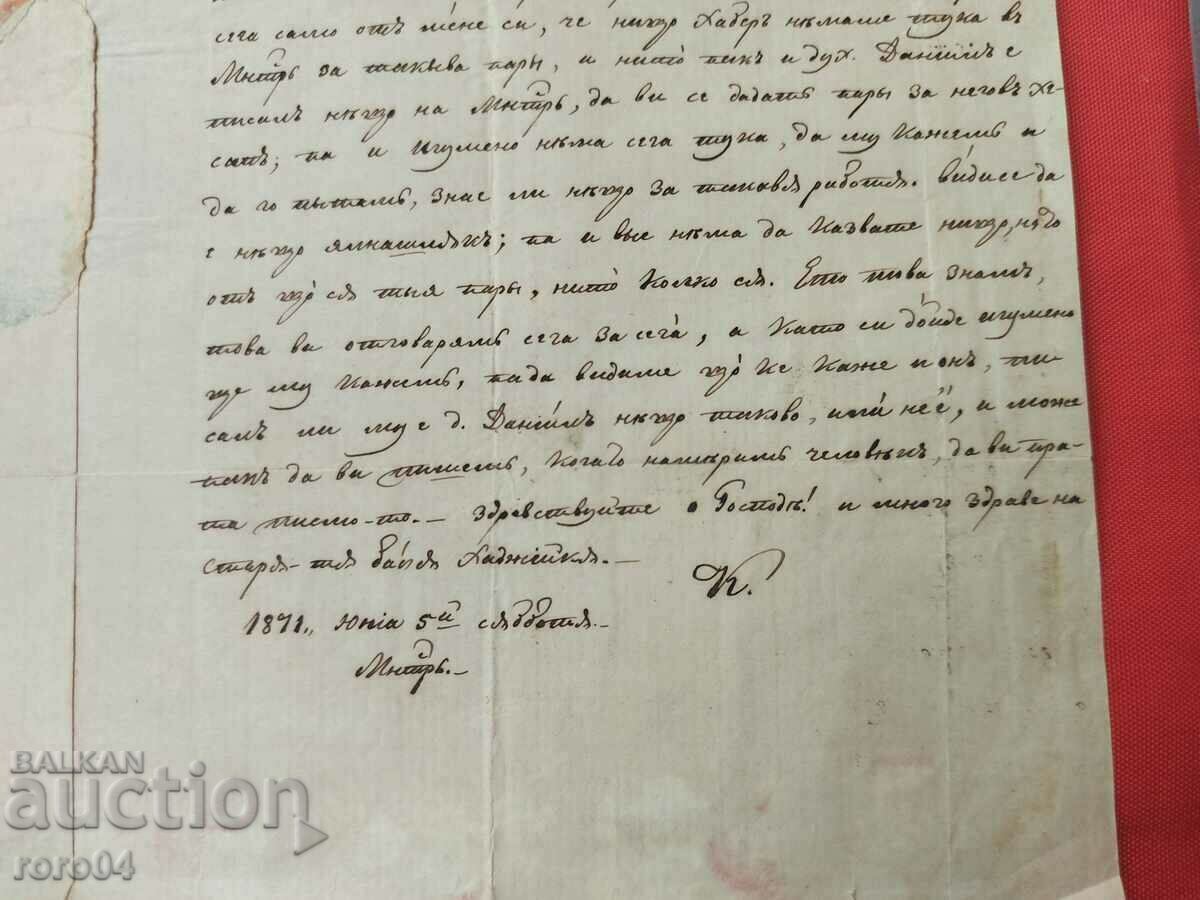 сега само отъ мене си, че нищо хаберъ нѣмаме тука въ
Мнтрь за такыва пары, и нито пакъ и дух. Данїилъ е
писалъ нѣщо на Мнтрь, да ви се дадатъ пары за неговъ хе-
сапъ; па и Игумено нѣма сега тука, да му кажемъ и
да го пытамъ, знае ли нѣщо за такавѫ работѫ. Види се да
е нѣщо ялнашлѫкъ; па и вые нѣма да казвате нищо,
отъ що сѫ тыя пары, нито колко сѫ. Ето това знамъ,
това ви отговарямъ сега за сега, а като си дойде игумено
ще му кажемъ, па да видиме що ке каже и онъ, пи-
салъ ли му е д. Данїилъ нѣщо таково, или неё, и може
пакъ да ви пишемъ, когато намѣримъ человѣкъ, да ви пра-
та писмо-то.— Здравствуйте о Господѣ! и много здраве на
старѫ-тѫ бабѫ Хаджїйкѫ.—
К.
1871,, Юнїа 5й сѫбботѫ.—
Мнтрь.—
BALKAN
auction
roro04